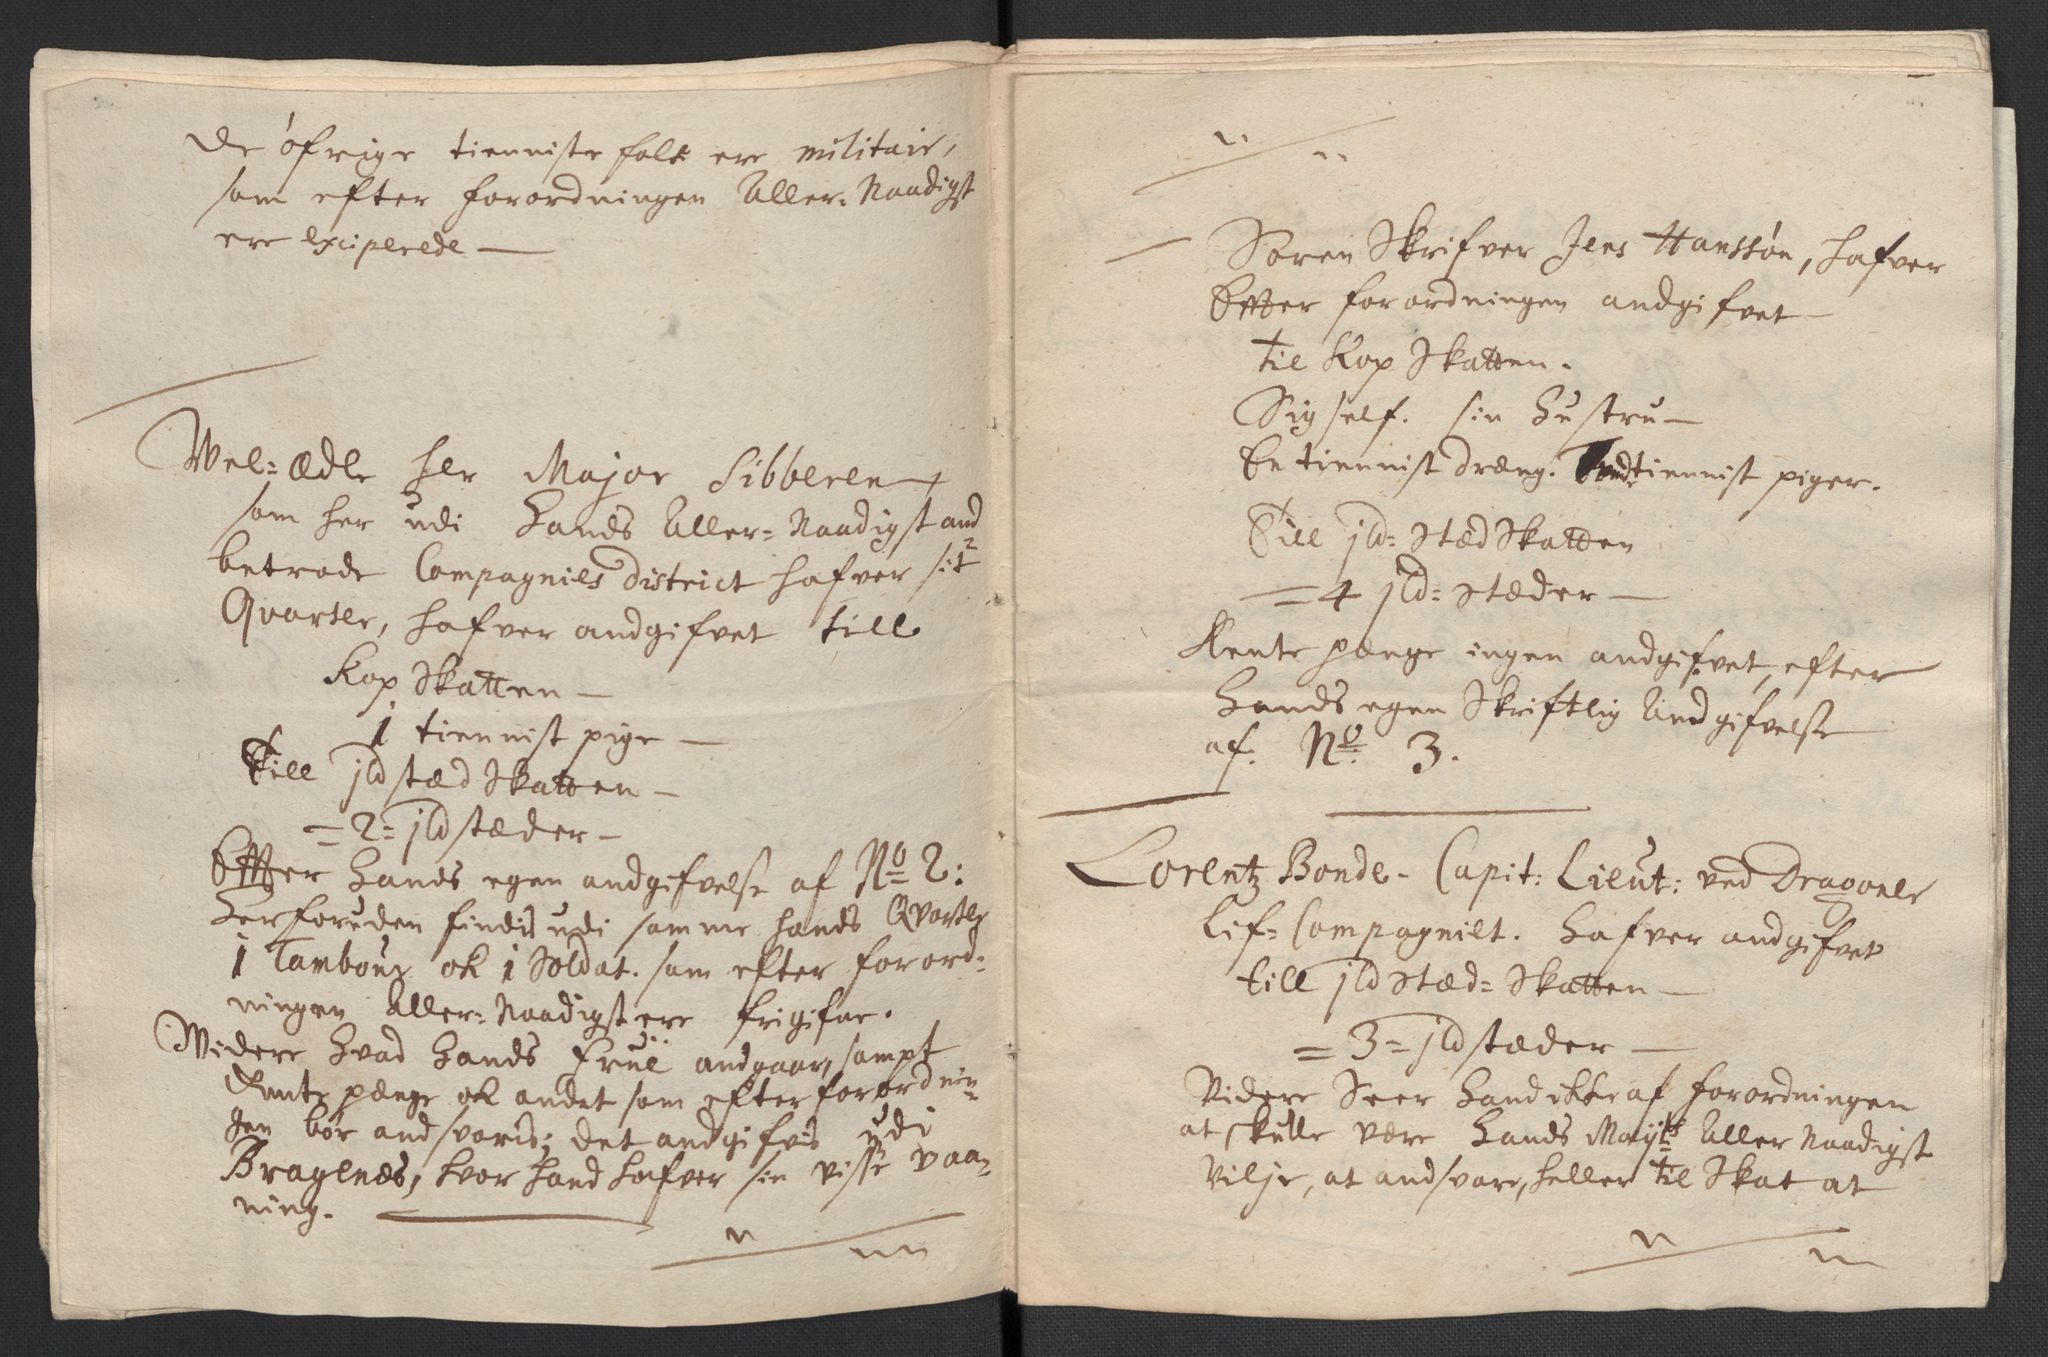 De öfrige tienniste folk ere militair,
som efter forordningen Aller-Naadigst
ere exciperede —
Wel-Ædle her Major Sibberen
som her udi hands Aller-Naadigst and
betrode Compagnies district hafver sit
Quarter, hafver andgifvet till
Kop Skatten —
1 tiennist pige —
Till jld stæd Skatten —
= 2 = jld stæder —
Effter hands egen andgifvelse af No 2:
Herforuden findis udi samme hands Qvarter
1 Tambour ok 1 Soldat. som efter forord-
ningen Aller-Naadigst ere frigifne.
Widere hvad hands Frue andgaar, sampt
Rente pænge ok andet som efter forordnin-
gen bör andsvaris; det andgifvis udi
Bragenæs, hvor hand hafver sin visse vaa-
ning.
Soren Skrifver Jens Hanssön, hafver
Effter forordningen andgifvet —
til Kop Skatten.
Sig self. sin Hustru —
En tiennist dræng. tiennist piger.
Till jld-stæd Skatten
= 4 jld-stæder —
Rente pænge ingen andgifvet, efter
hands egen Skriftlig Andgifvelse
af. No 3.
Lorentz Bonde - Capit: Lieut: ved Dragoner
Lif-Compagniet. Hafver andgifvet
till jld stæd-Skatten —
= 3 = jld stæder —
Videre Seer hand ikke af forordningen
at skulle være hands Mayts Aller Naadigst
Vilje, at andsvare, heller til Skat at